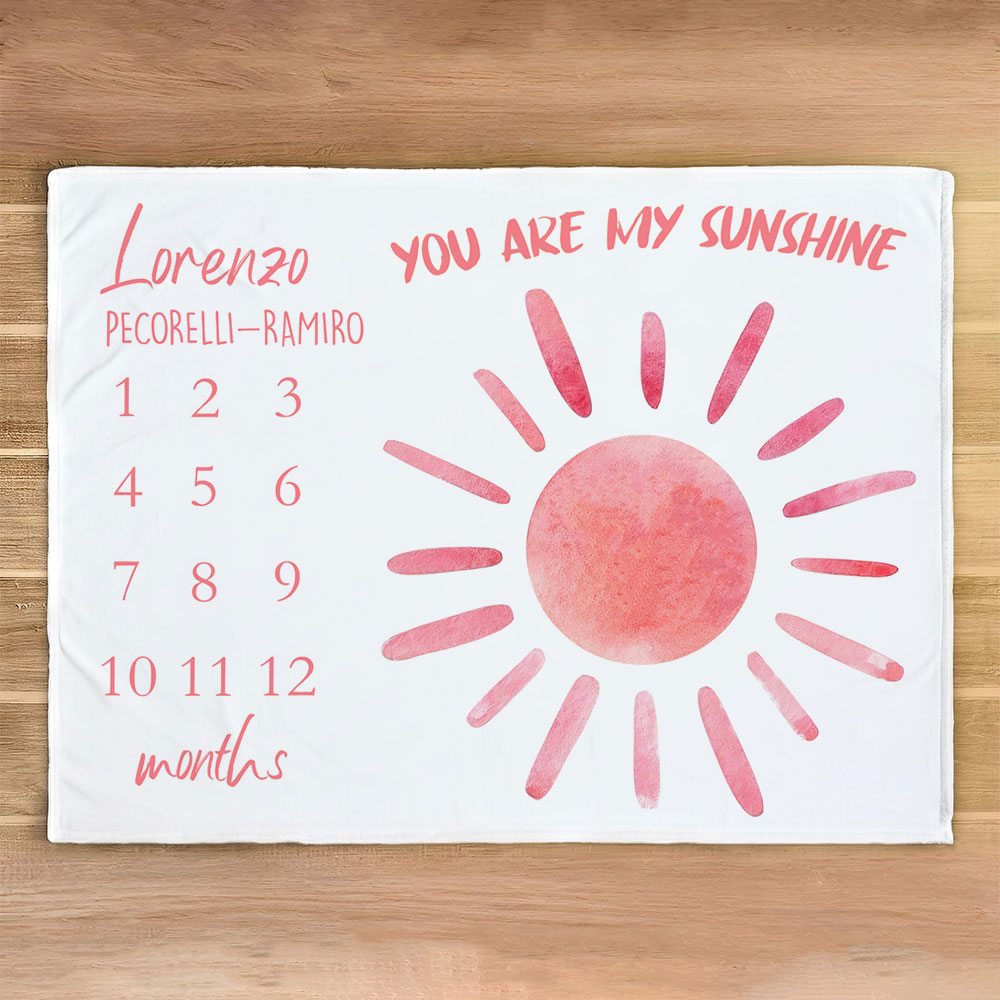 Lorenzo
PECORELLI–RAMIRO
1 2 3
4 5 6
7 8 9
10 11 12
months
YOU ARE MY SUNSHINE